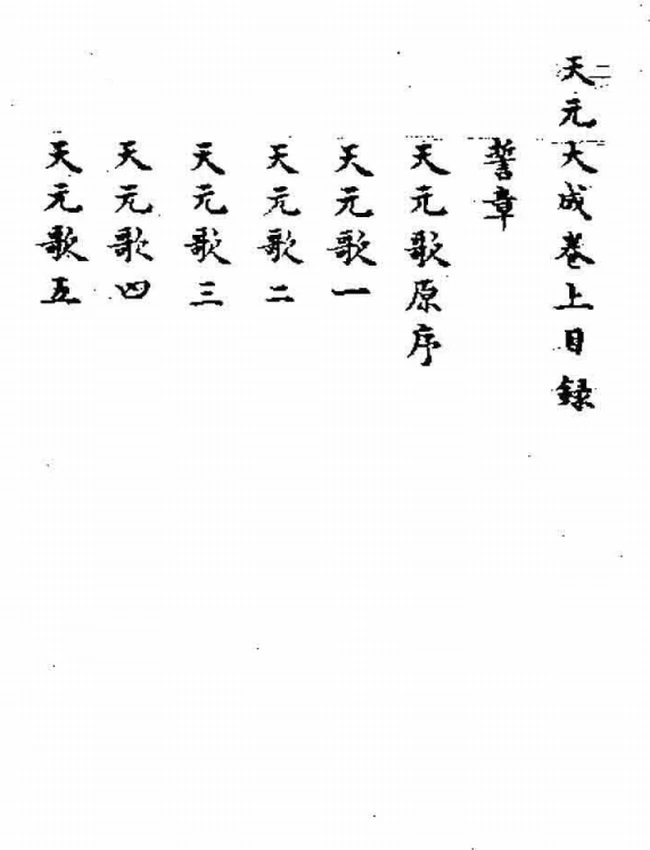 天元大成卷上目録
誓章
天元歌原序
天元歌一
天元歌二
天元歌三
天元歌四
天元歌五